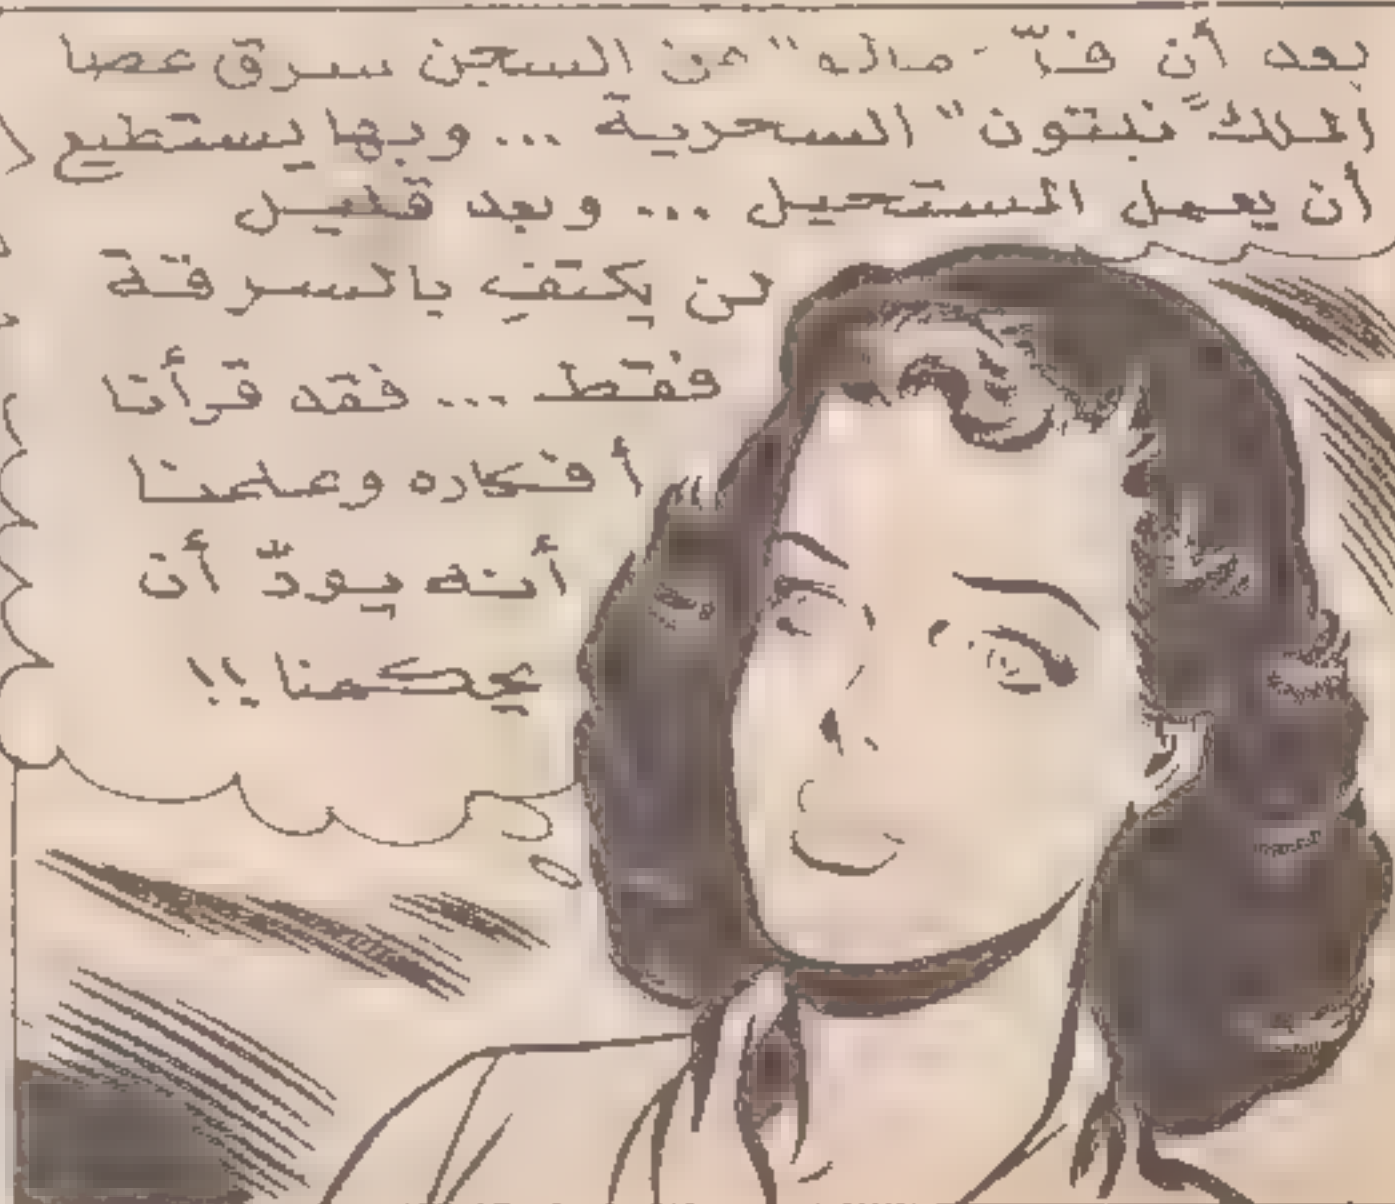 بعد أن فرّ "ماله" من السجن سرق عصا
الملك "نبتون" السحرية ... وبها يستطيع
أن يعمل المستحيل ... وبعد قليل
لن يكتفِ بالسرقة
فقط ... فقد قرأنا
أفكاره وعلمنا
أنه يودّ أن
يحكمنا !!